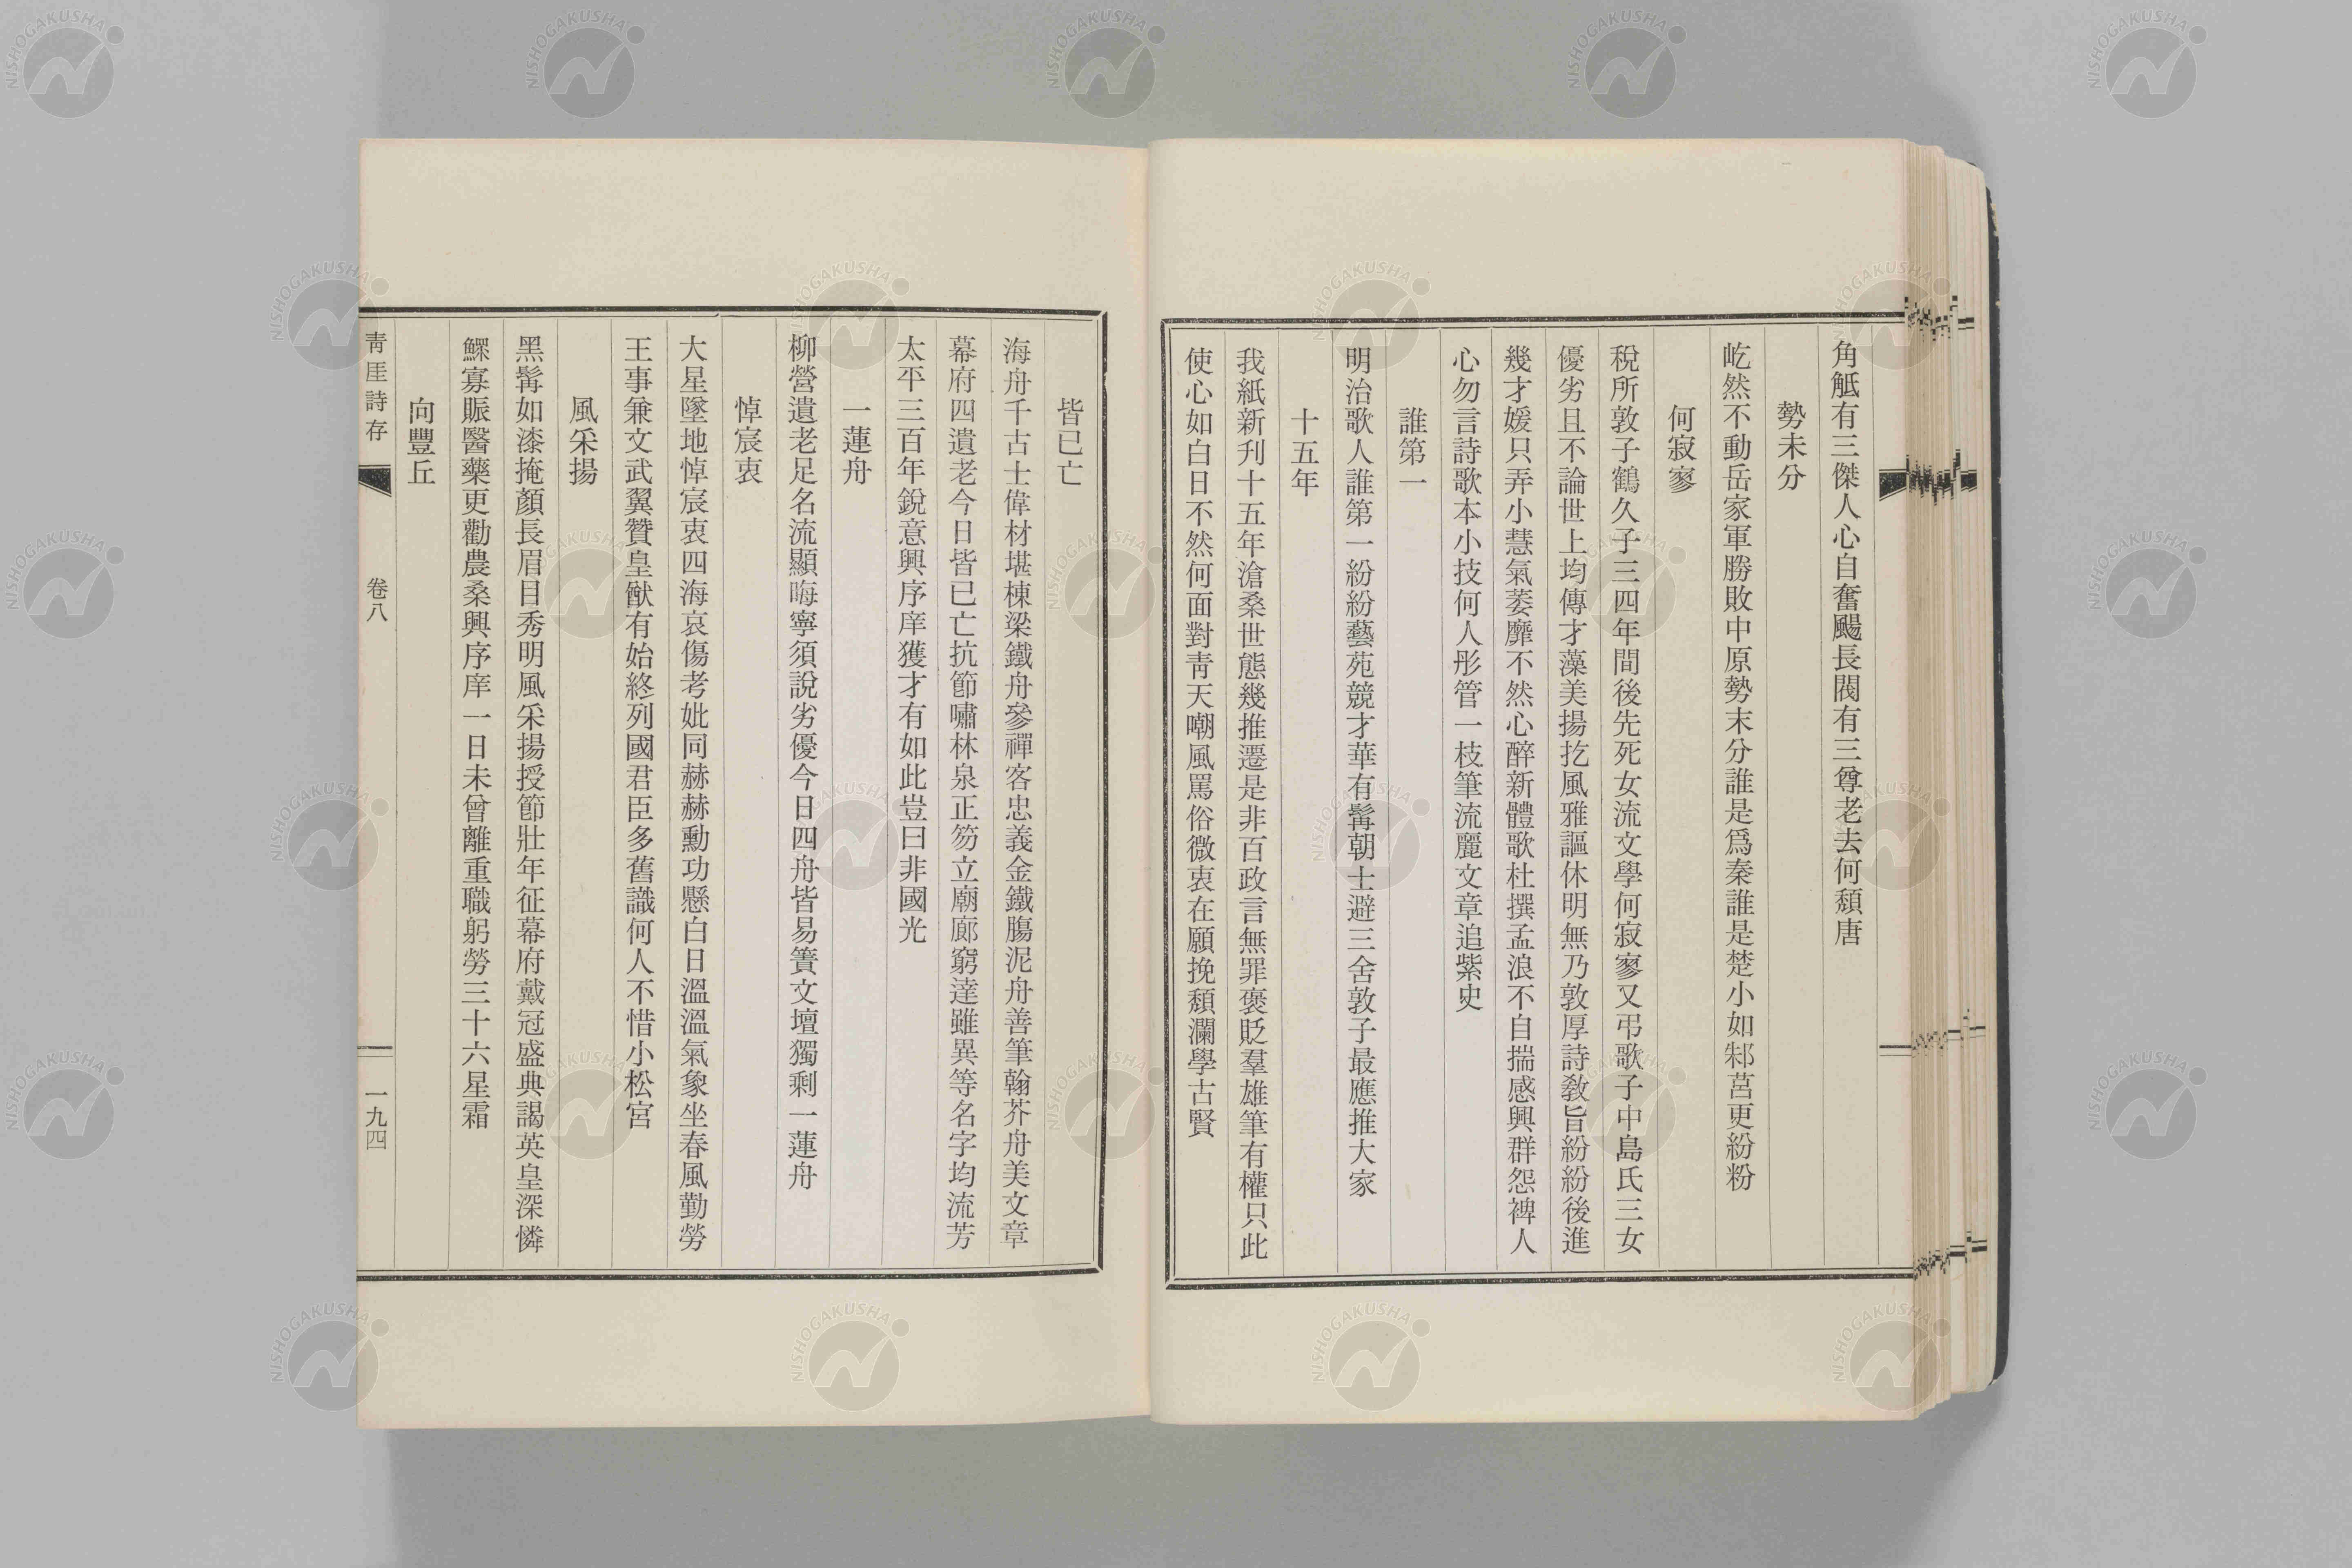 角觝有三傑人心自奮颺長閥有三尊老去何頽唐
勢未分
屹然不動岳家軍勝敗中原勢末分誰是爲秦誰是楚小如邾莒更紛粉
何寂寥
稅所敦子鶴久子三四年間後先死女流文學何寂寥又弔歌子中島氏三女
優劣且不論世上均傳才藻美揚扢風雅謳休明無乃敦厚詩敎旨紛紛後進
幾才媛只弄小慧氣萎靡不然心醉新體歌杜撰孟浪不自揣感興群怨裨人
心勿言詩歌本小技何人彤管一枝筆流麗文章追紫史
誰第一
明治歌人誰第一紛紛藝苑競才華有髯朝士避三舍敦子最應推大家
十五年
我紙新刋十五年滄桑世態幾推遷是非百政言無罪褒貶羣雄筆有權只此
使心如白日不然何面對靑天嘲風罵俗微衷在願挽頽瀾學古賢
皆已亡
海舟千古士偉材堪棟梁鐵舟參禪客忠義金鐵膓泥舟善筆翰芥舟美文章
幕府四遺老今日皆已亡抗節嘯林泉正笏立廟廊窮達雖異等名字均流芳
太平三百年銳意興序庠獲才有如此豈曰非國光
一蓮舟
柳營遺老足名流顯晦寧須說劣優今日四舟皆易簀文壇獨剩一蓮舟
悼宸衷
大星墜地悼宸衷四海哀傷考妣同赫赫勳功懸白日溫溫氣象坐春風勤勞
王事兼文武翼贊皇猷有始終列國君臣多舊識何人不惜小松宮
風采揚
黑髯如漆掩顏長眉目秀明風采揚授節壯年征幕府戴冠盛典謁英皇深憐
鰥寡賑醫藥更勸農桑興序庠一日未曾離重職躬勞三十六星霜
向豐丘
靑厓詩存
卷八
一九四
NISHOGAKUSHA